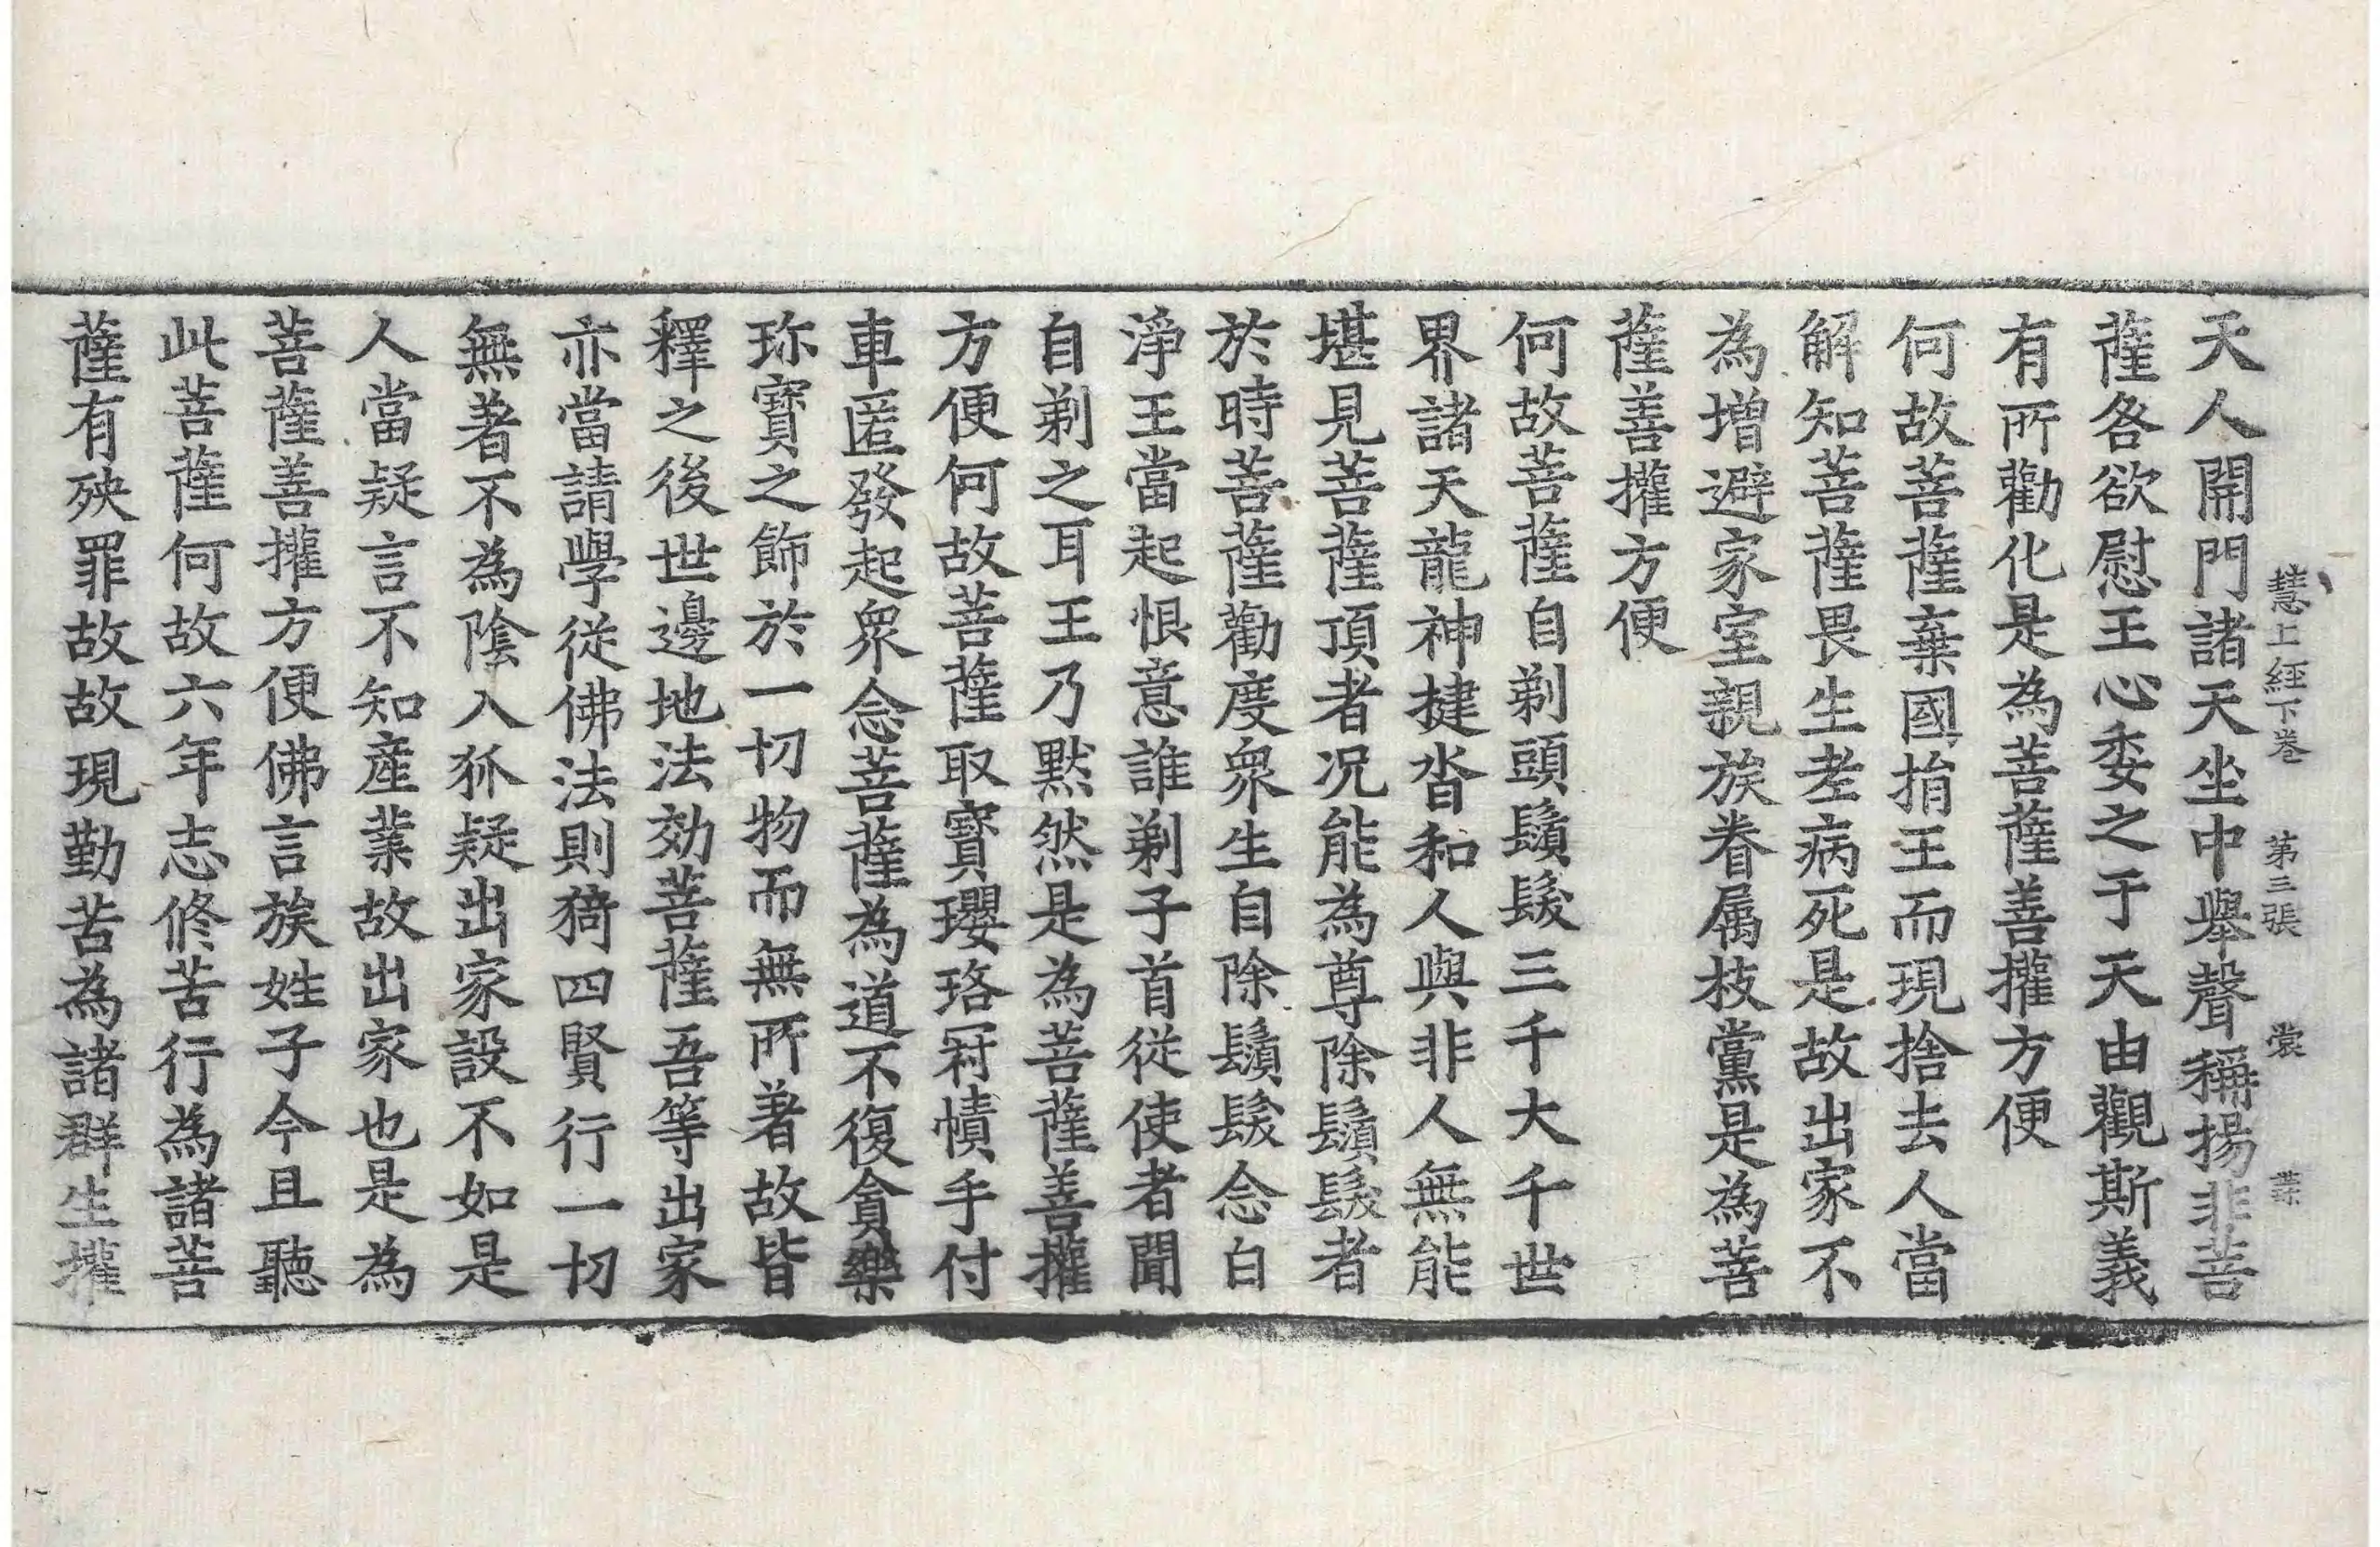 慧上經下卷　第三張　裳
天人開門諸天坐中舉聲稱揚非菩
薩各欲慰王心委之于天由觀斯義
有所勸化是為菩薩善權方便
何故菩薩棄國捐王而現捨去人當
解知菩薩畏生老病死是故出家不
為增避家室親族眷属枝黨是為菩
薩善權方便
何故菩薩自剃頭鬚髮三千大千世
界諸天龍神揵沓和人與非人無能
堪見菩薩頂者况能為尊除鬚髮者
於時菩薩勸度衆生自除鬚髮念白
淨王當起恨意誰剃子首從使者聞
自剃之耳王乃默然是為菩薩善權
方便何故菩薩取寶瓔珞冠幘手付
車匿發起衆念菩薩為道不復貪樂
珎寶之飾於一切物而無所著故皆
釋之後世邊地法効菩薩吾等出家
亦當請學從佛法則猗四賢行一切
無著不為陰入狐疑出家設不如是
人當疑言不知産業故出家也是為
菩薩善權方便佛言族姓子今且聽
此菩薩何故六年志修苦行為諸菩
薩有殃罪故故現勤苦為諸群生權